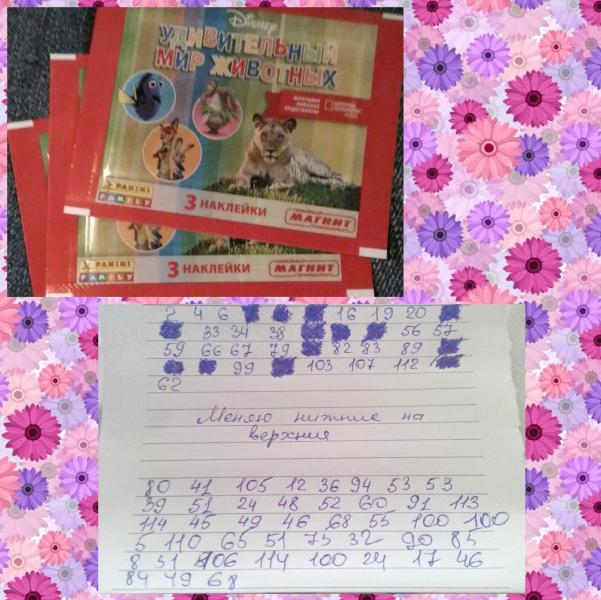 Disney
УДИВИТЕЛЬНЫЙ
МИР ЖИВОТНЫХ
PANINI
FAMILY
3 НАКЛЕЙКИ
МАГНИТ
PANINI
FAMILY
3 НАКЛЕЙКИ
МАГНИТ
2 4 6 16 19 20
33 34 38 56 57
59 66 67 79 82 83 89
99 103 107 112
62
Меняю нижние на
верхния
80 41 105 12 36 94 53 53
39 51 24 48 52 60 91 113
114 45 49 46 68 55 100 100
5 110 65 51 75 32 90 85
8 31 106 114 100 24 17 46
84 49 68